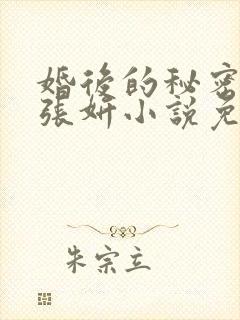 婚後的秘密
張妍小說免
朱宗立